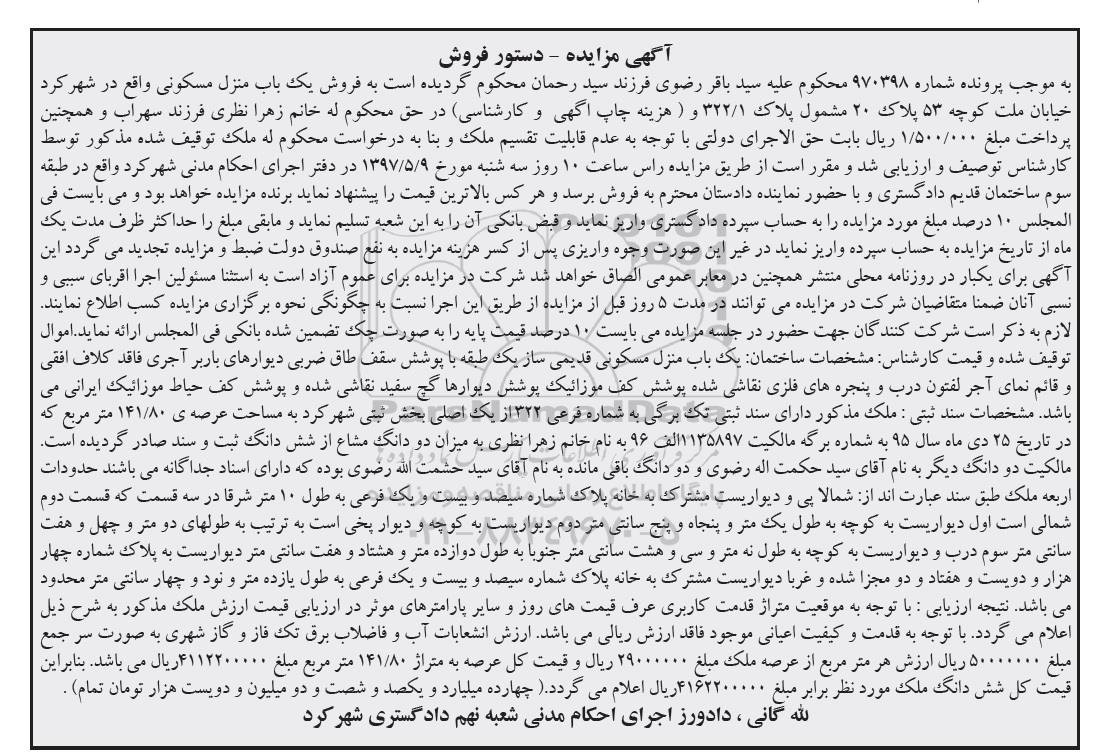 آگهی مزایده - دستور فروش
به موجب پرونده شماره ۹۷۰۳۹۸ محکوم علیه سید باقر رضوی فرزند سید رحمان محکوم گردیده است به فروش یک باب منزل مسکونی واقع در شهرکرد
خیابان ملت کوچه ۵۳ پلاک ۲۰ مشمول پلاک ۳۲۲/۱ و ( هزینه چاپ آگهی و کارشناسی) در حق محکوم له خانم زهرا نظری فرزند سهراب و همچنین
پرداخت مبلغ ۱/۵۰۰/۰۰۰ ریال بابت حق الاجرای دولتی با توجه به عدم قابلیت تقسیم ملک و بنا به درخواست محکوم له ملک توقیف شده مذکور توسط
کارشناس توصیف و ارزیابی شد و مقرر است از طریق مزایده راس ساعت ۱۰ روز سه شنبه مورخ ۱۳۹۷/۵/۹ در دفتر اجرای احکام مدنی شهرکرد واقع در طبقه
سوم ساختمان قدیم دادگستری و با حضور نماینده دادستان محترم به فروش برسد و هر کس بالاترین قیمت را پیشنهاد نماید برنده مزایده خواهد بود و می بایست فی
المجلس ۱۰ درصد مبلغ مورد مزایده را به حساب سپرده دادگستری واریز نماید و قبض بانکی آن را به این شعبه تسلیم نماید و مابقی مبلغ را حداکثر ظرف مدت یک
ماه از تاریخ مزایده به حساب سپرده واریز نماید در غیر این صورت وجوه واریزی پس از کسر هزینه مزایده به نفع صندوق دولت ضبط و مزایده تجدید می گردد این
آگهی برای یکبار در روزنامه محلی منتشر همچنین در معابر عمومی الصاق خواهد شد شرکت در مزایده برای عموم آزاد است به استثنا مسئولین اجرا اقربای سببی و
نسبی آنان ضمنا متقاضیان شرکت در مزایده می توانند در مدت ۵ روز قبل از مزایده از طریق این اجرا نسبت به چگونگی نحوه برگزاری مزایده کسب اطلاع نمایند.
لازم به ذکر است شرکت کنندگان جهت حضور در جلسه مزایده می بایست ۱۰ درصد قیمت پایه را به صورت چک تضمین شده بانکی فی المجلس ارائه نماید.اموال
توقیف شده و قیمت کارشناس: مشخصات ساختمان: یک باب منزل مسکونی قدیمی ساز یک طبقه با پوشش سقف طاق ضربی دیوارهای باربر آجری فاقد کلاف افقی
و قائم نمای آجر لفتون درب و پنجره های فلزی نقاشی شده پوشش کف موزائیک پوشش دیوارها گچ سفید نقاشی شده و پوشش کف حیاط موزائیک ایرانی می
باشد. مشخصات سند ثبتی : ملک مذکور دارای سند ثبتی تک برگی به شماره فرعی ۳۲۲ از یک اصلی بخش ثبتی شهرکرد به مساحت عرصه ی ۱۴۱/۸۰ متر مربع که
در تاریخ ۲۵ دی ماه سال ۹۵ به شماره برگه مالکیت ۱۱۳۵۸۹۷الف ۹۶ به نام خانم زهرا نظری به میزان دو دانگ مشاع از شش دانگ ثبت و سند صادر گردیده است.
مالکیت دو دانگ دیگر به نام آقای سید حکمت اله رضوی و دو دانگ باقی مانده به نام آقای سید حشمت الله رضوی بوده که دارای اسناد جداگانه می باشند حدودات
اربعه ملک طبق سند عبارت اند از: شمالا پی و دیواریست مشترک به خانه پلاک شماره سیصد و بیست و یک فرعی به طول ۱۰ متر شرقا در سه قسمت که قسمت دوم
شمالی است اول دیواریست به کوچه به طول یک متر و پنجاه و پنج سانتی متر دوم دیواریست به کوچه و دیوار پخی است به ترتیب به طولهای دو متر و چهل و هفت
سانتی متر سوم درب و دیواریست به کوچه به طول نه متر و سی و هشت سانتی متر جنوبا به طول دوازده متر و هشتاد و هفت سانتی متر دیواریست به پلاک شماره چهار
هزار و دویست و هفتاد و دو مجزا شده و غربا دیواریست مشترک به خانه پلاک شماره سیصد و بیست و یک فرعی به طول یازده متر و نود و چهار سانتی متر محدود
می باشد. نتیجه ارزیابی : با توجه به موقعیت متراژ قدمت کاربری عرف قیمت های روز و سایر پارامترهای موثر در ارزیابی قیمت ارزش ملک مذکور به شرح ذیل
اعلام می گردد. با توجه به قدمت و کیفیت اعیانی موجود فاقد ارزش ریالی می باشد. ارزش انشعابات آب و فاضلاب برق تک فاز و گاز شهری به صورت سر جمع
مبلغ ۵۰۰۰۰۰۰۰ ریال ارزش هر متر مربع از عرصه ملک مبلغ ۲۹۰۰۰۰۰۰ ریال و قیمت کل عرصه به متراژ ۱۴۱/۸۰ متر مربع مبلغ ۴۱۱۲۲۰۰۰۰۰ریال می باشد. بنابراین
قیمت کل شش دانگ ملک مورد نظر برابر مبلغ ۴۱۶۲۲۰۰۰۰۰ریال اعلام می گردد.( چهارده میلیارد و یکصد و شصت و دو میلیون و دویست هزار تومان تمام) .
لله گانی ، دادورز اجرای احکام مدنی شعبه نهم دادگستری شهرکرد
ParsNamadData
پایگاه اطلاع رسانی مناقصه و مزایده
۰۲۱-۸۸۳۴۹۶۷۰-۵